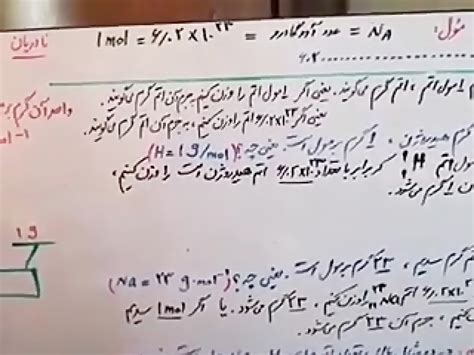 مول: 1mol = ۶/۰۲×۱۰^۲۳ = عدد آووگادرو = NA
نادریان
۶۰۲ ........................
مول اتم ، اتم گرم می‌گویند. یعنی اگر ۱مول اتم را وزن کنیم به جرم آن اتم گرم می‌گویند.
یعنی اگر ۶/۰۲×۱۰^۲۳ اتم را وزن کنیم ، به جرم آن اتم گرم می‌گویند.
واحد آن گرم بر
م هیدروژن ، ۱گرم بر مول است یعنی چه؟ (H = 1g/mol)
۱-
ول اتم H که برابر با تعداد ۶/۰۲×۱۰^۲۳ اتم هیدروژن است را وزن کنیم ،
ن ۱گرم می‌شود.
1g
م سدیم ، ۲۳گرم بر مول است. یعنی چه؟ (Na = ۲۳ g.mol^-1)
۶/۰۲×۱۰ اتم Na را وزن کنیم ، ۲۳گرم می‌شود. یا اگر 1mol سدیم
کنیم ، جرم آن ۲۳ گرم می‌شود.